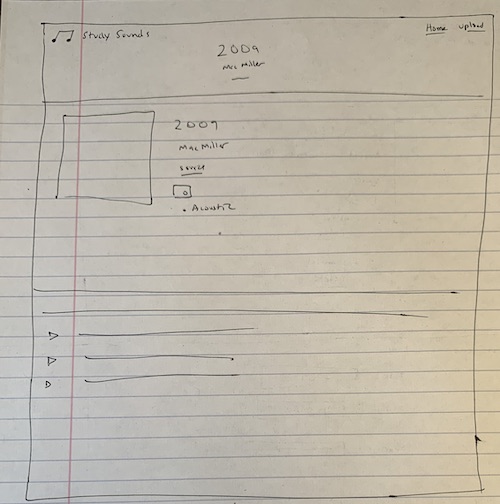 Study Sounds
Home upload
2009
Mac Miller
2009
Mac Miller
source
• Acoustic